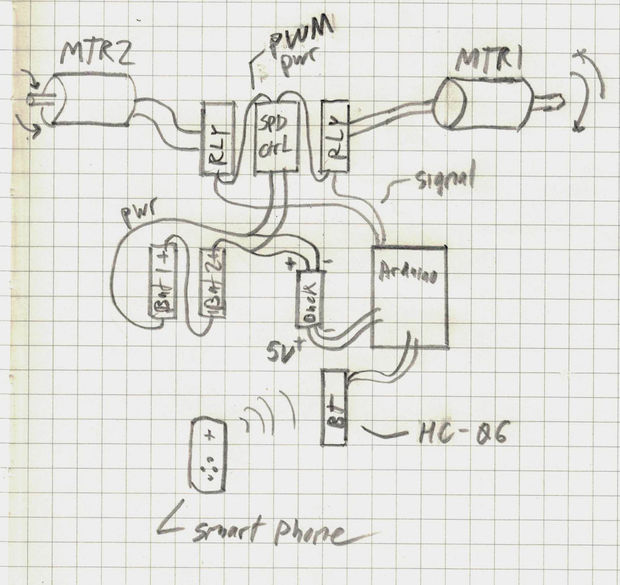 MTR2
PWM
pwr
MTR1
RLY
SPD
ctrL
RLY
signal
pwr
Bat 1 +
Bat 2 +
+ -
Buck
Arduino
5V + -
BT
HC-06
+
smart phone